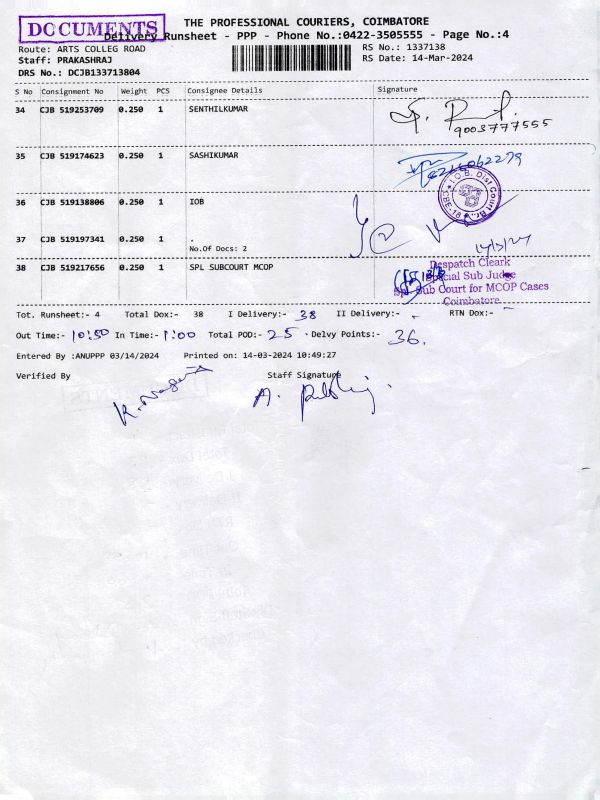 DOCUMENTS
THE PROFESSIONAL COURIERS, COIMBATORE
Delivery Runsheet - PPP - Phone No.:0422-3505555 - Page No.:4
Route: ARTS COLLEG ROAD
RS No.: 1337138
Staff: PRAKASHRAJ
RS Date: 14-Mar-2024
DRS No.: DCJB133713804
S No Consignment No Weight PCS Consignee Details Signature
34 CJB 519253709 0.250 1 SENTHILKUMAR
9003777555
35 CJB 519174623 0.250 1 SASHIKUMAR
36 CJB 519138806 0.250 1 IOB
I.O.B. Dist Court Br.
CBE-18
37 CJB 519197341 0.250 1 .
No.Of Docs: 2
14/3/24
38 CJB 519217656 0.250 1 SPL SUBCOURT MCOP
Despatch Cleark
Special Sub Judge
Spl Sub Court for MCOP Cases
Coimbatore
Tot. Runsheet:- 4 Total Dox:- 38 I Delivery:- 38 II Delivery:- - RTN Dox:- -
Out Time:- 10:50 In Time:- 1:00 Total POD:- 25 Delvy Points:- 36.
Entered By :ANUPPP 03/14/2024 Printed on: 14-03-2024 10:49:27
Verified By Staff Signature